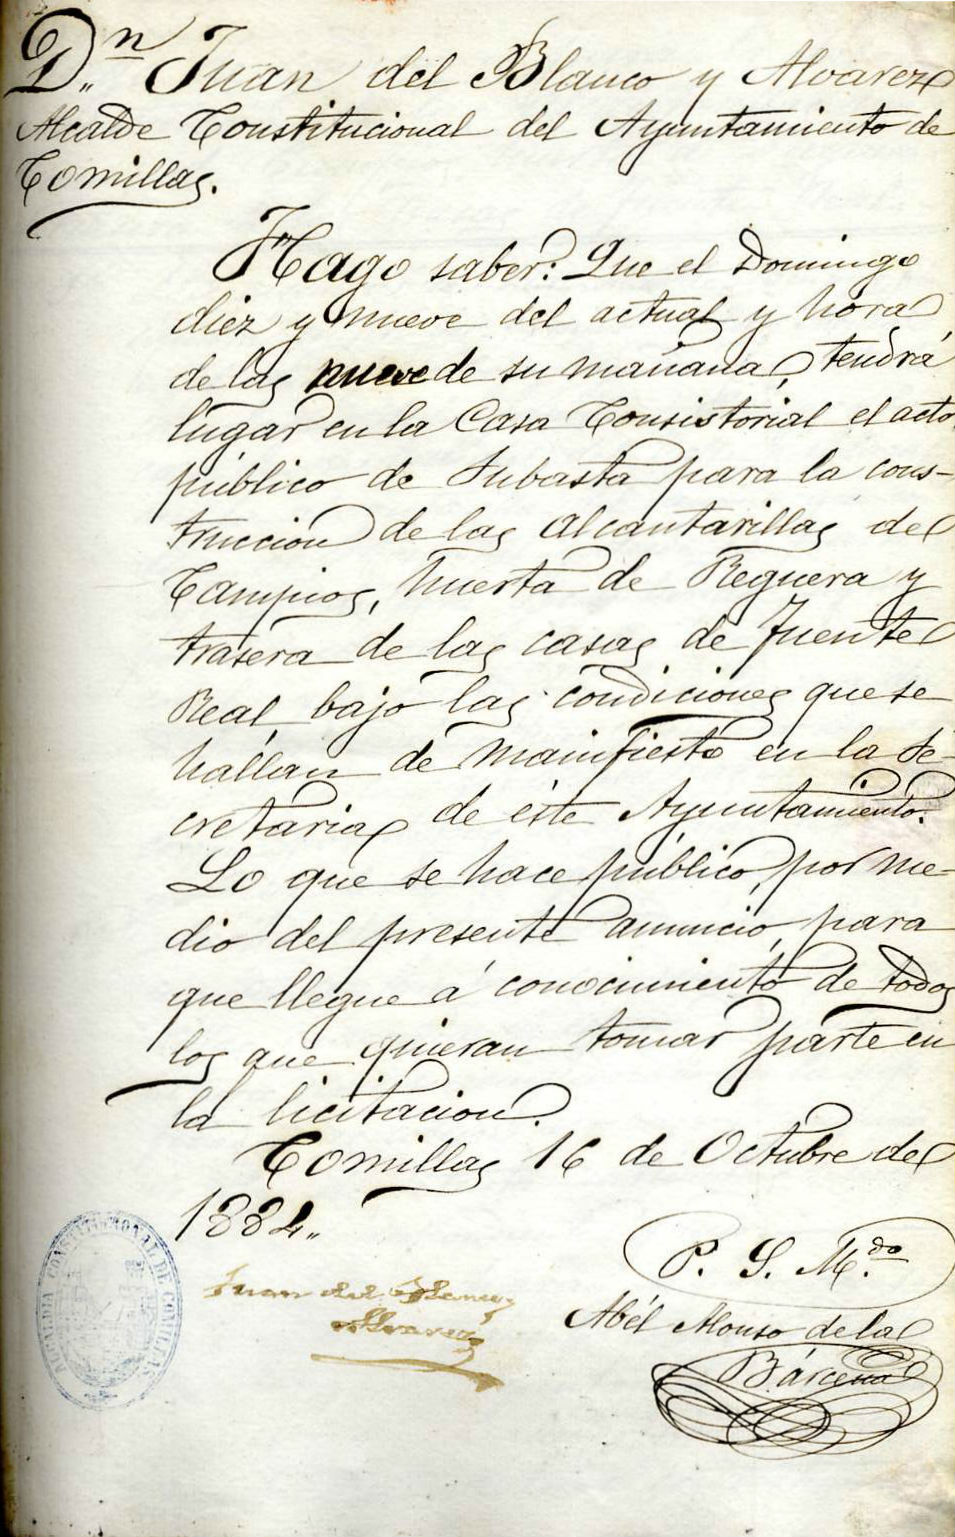 D.ⁿ Juan del Blanco y Alvarez
Alcalde Constitucional del Ayuntamiento de
Comillas.
Hago saber: Que el Domingo
diez y nueve del actual y hora
de las nueve de su mañana, tendrá
lugar en la Casa Consistorial el acto
público de Subasta para la cons-
truccion de las alcantarillas de
Campios, huerta de Reguera y
trasera de las casas de Fuente
Real, bajo las condiciones que se
hallan de manifiesto en la Se-
cretaria de éste Ayuntamiento.
Lo que se hace público, por me-
dio del presente anuncio, para
que llegue á conocimiento de todos
los que quieran tomar parte en
la licitacion.
Comillas 16 de Octubre de
1884.
P. S. M.do
Juan del Blanco y
Alvarez
Abél Alonso de la
Bárcena
ALCALDIA CONSTITUCIONAL DE COMILLAS